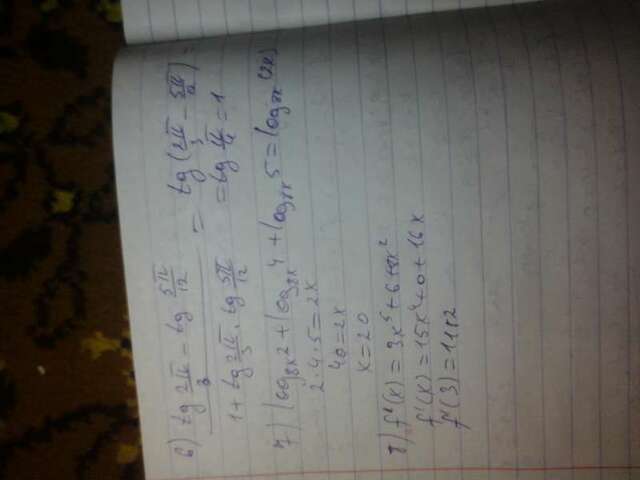 6) tg 2π/3 - tg 5π/12 / 1 + tg 2π/3 · tg 5π/12 = tg (2π/3 - 5π/12) =
= tg π/4 = 1
7) log₈ₓ2 + log₈ₓ4 + log₈ₓ5 = log₈ₓ(2x)
2·4·5=2x
40=2x
x=20
8) f'(x) = 3x⁵+6+8x²
f'(x) = 15x⁴+0+16x
f'(3) =